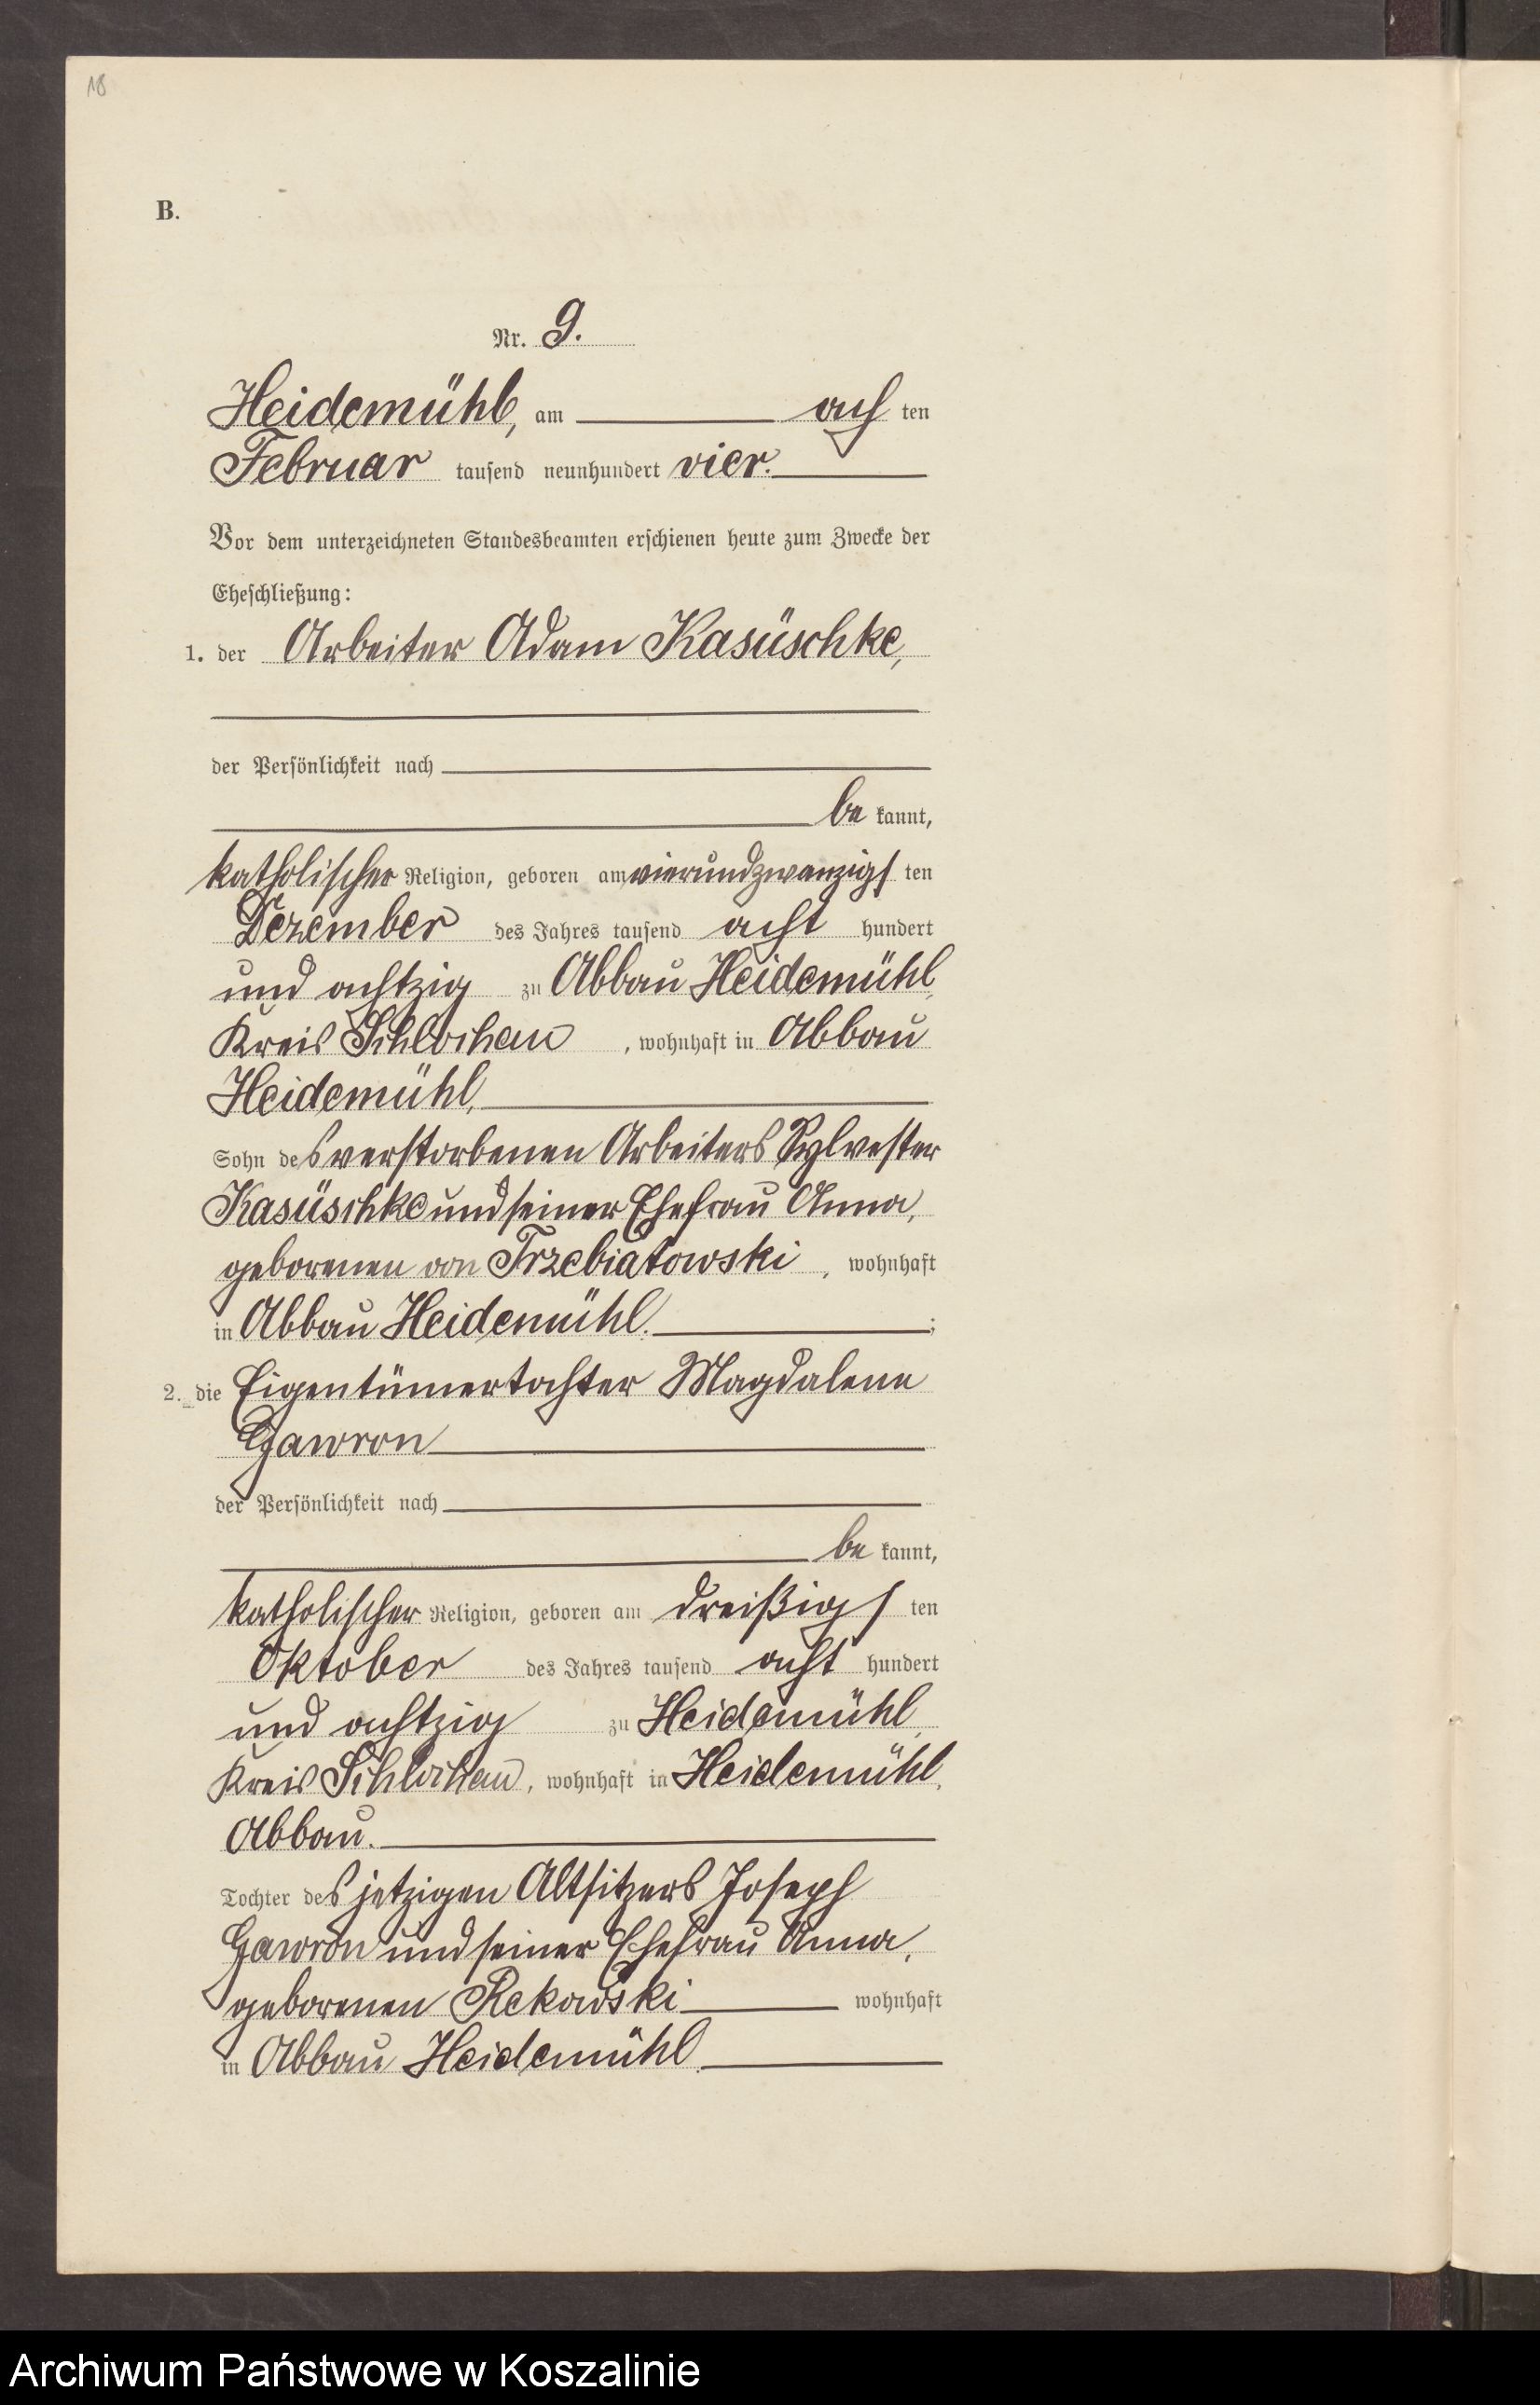 18
B.
Nr. 9.
Heidemühl, am ach ten
Februar tausend neunhundert vier.
Vor dem unterzeichneten Standesbeamten erschienen heute zum Zwecke der
Eheschließung:
1. der Arbeiter Adam Kasüschke,
der Persönlichkeit nach
be kannt,
katholischer Religion, geboren am vierundzwanzigs ten
Dezember des Jahres tausend acht hundert
und achtzig zu Abbau Heidemühl,
Kreis Schlochau, wohnhaft in Abbau
Heidemühl,
Sohn des verstorbenen Arbeiters Sylvester
Kasüschke und seiner Ehefrau Anna,
geborenen von Trzebiatowski, wohnhaft
in Abbau Heidemühl. ;
2. die Eigentümertochter Magdalena
Gawron
der Persönlichkeit nach
be kannt,
katholischer Religion, geboren am dreißigs ten
Oktober des Jahres tausend acht hundert
und achtzig zu Heidemühl,
Kreis Schlochau, wohnhaft in Heidemühl,
Abbau.
Tochter des jetzigen Altsitzers Joseph
Gawron und seiner Ehefrau Anna,
geborenen Rekowski wohnhaft
in Abbau Heidemühl.
Archiwum Państwowe w Koszalinie